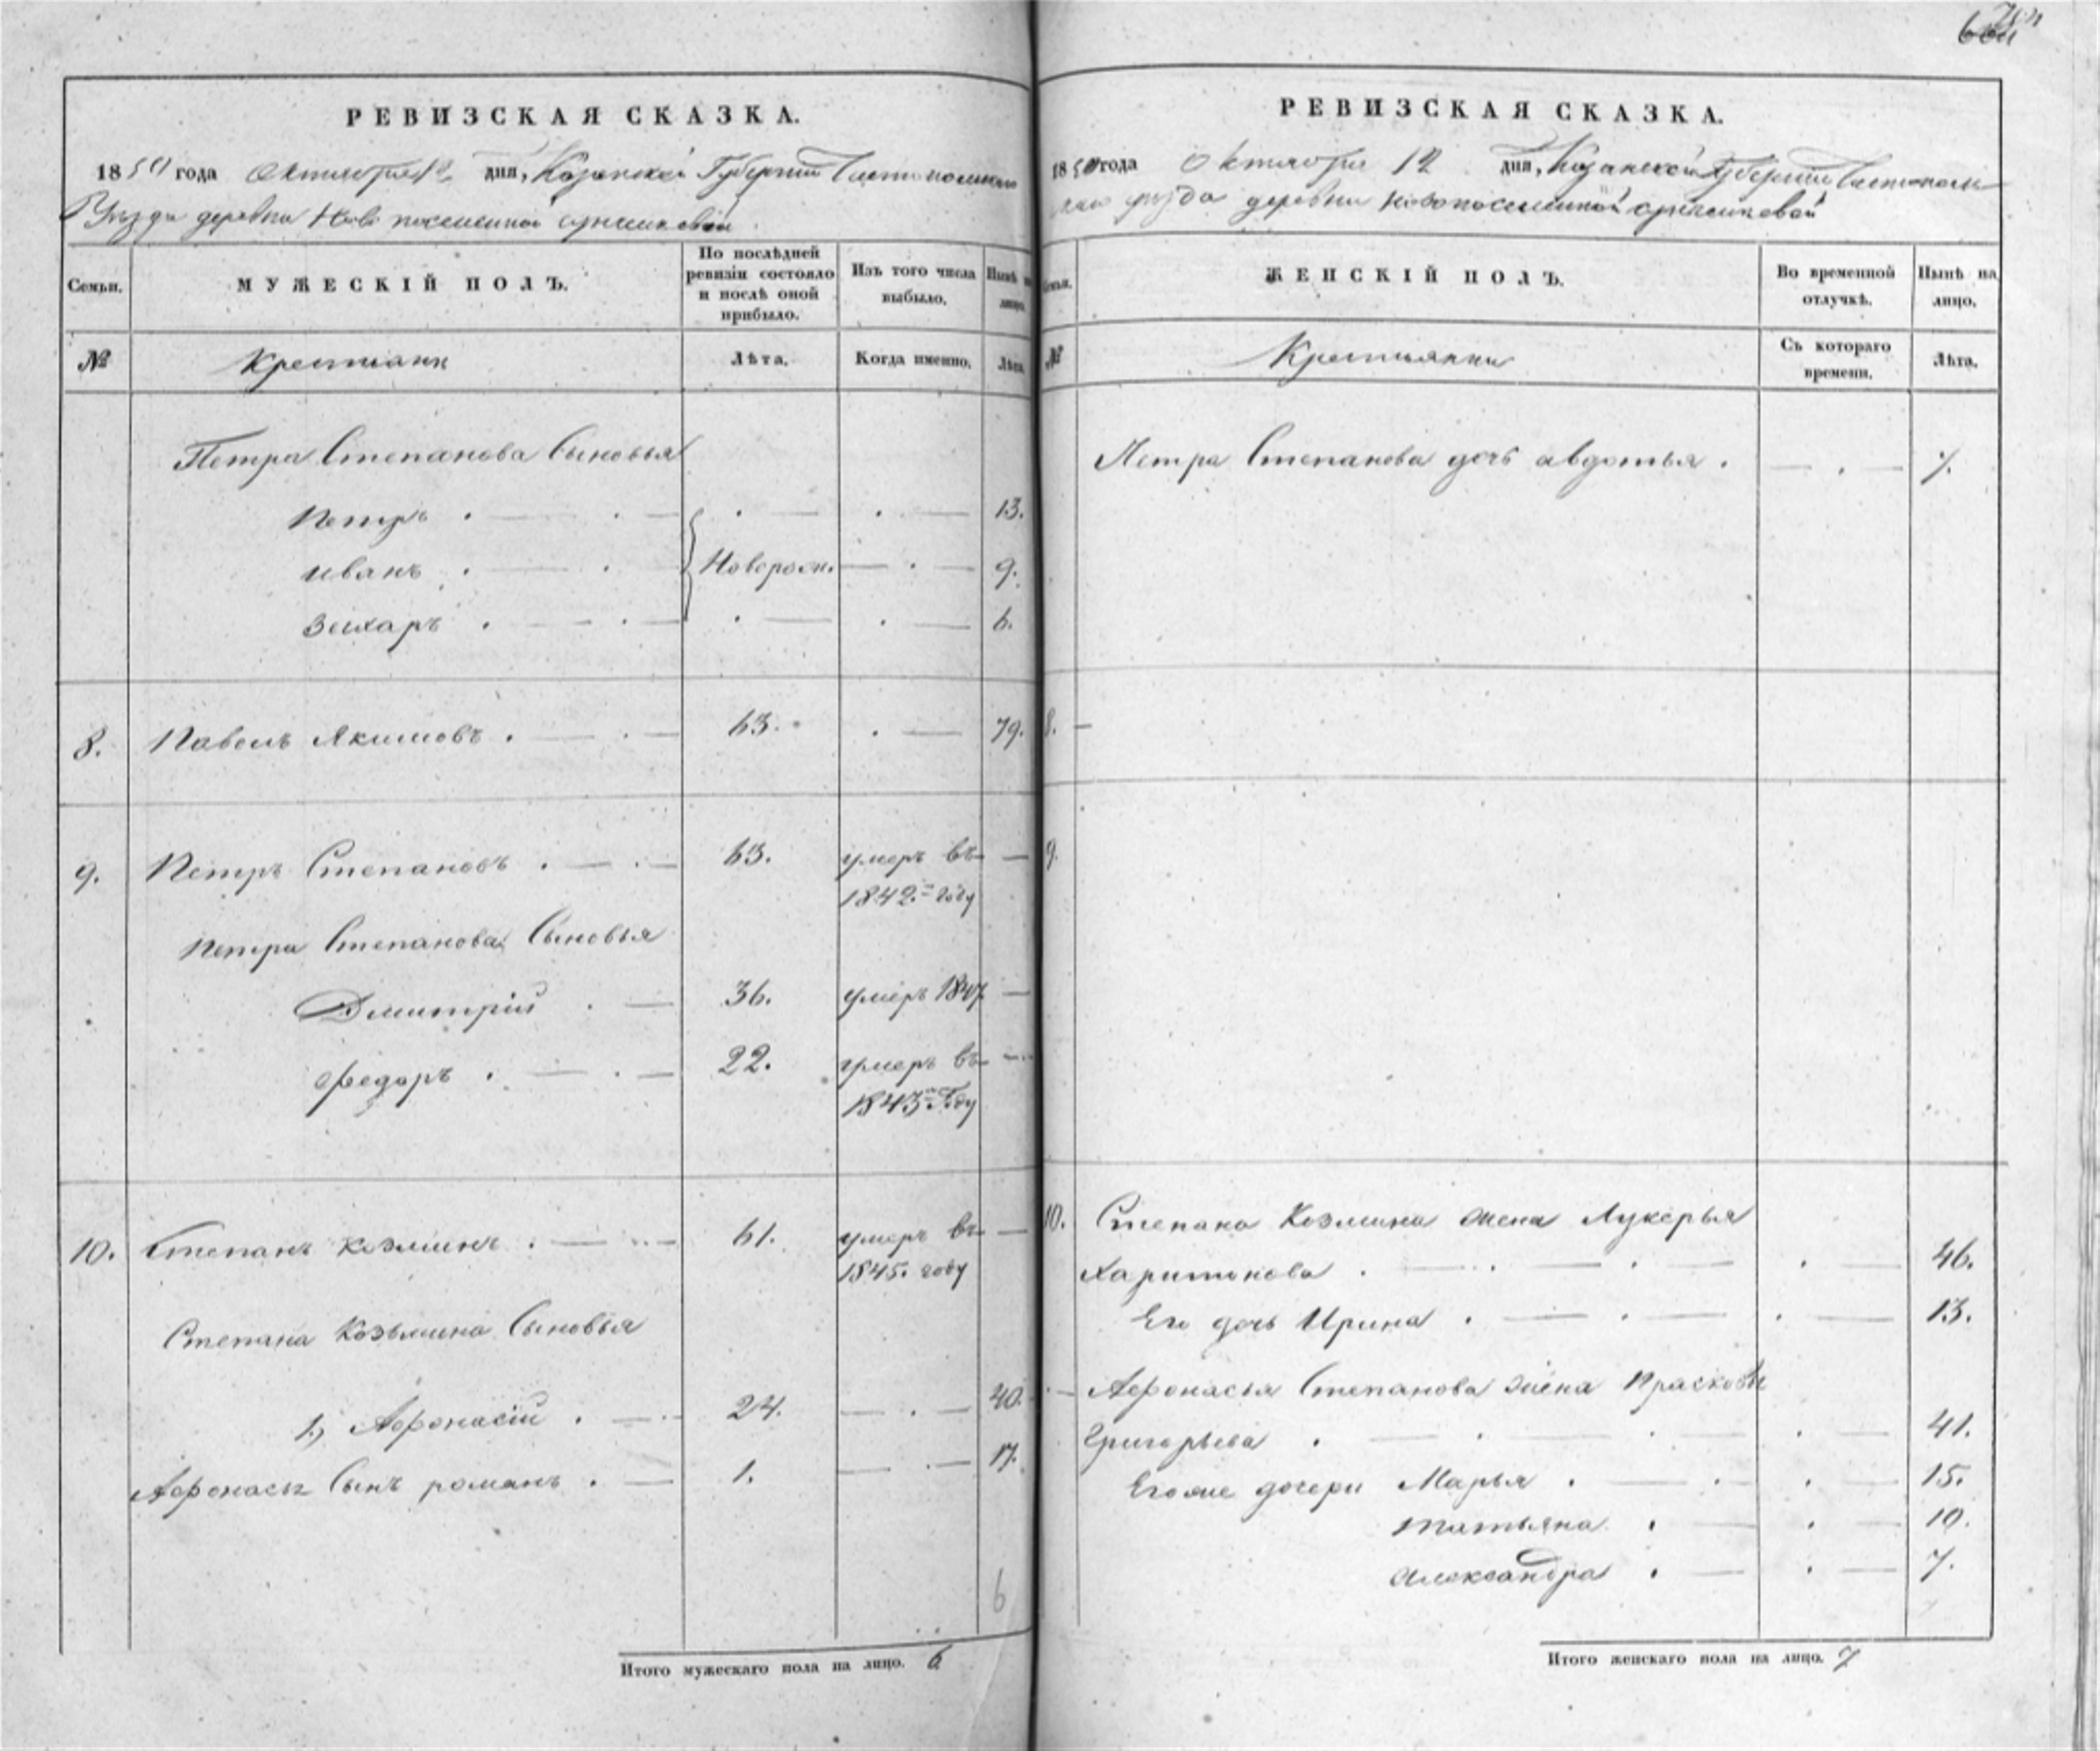 РЕВИЗСКАЯ СКАЗКА.
1850 года Октября 12 дня, Казанской Губернии Чистопольскаго
Уезда деревни Ново поселенной
Семьи. МУЖЕСКІЙ ПОЛЪ. По послѣдней ревизіи состояло и послѣ оной прибыло. Изъ того числа выбыло. Нынѣ на лицо.
№ Крестьяни Лѣта. Когда именно. Лѣта.
Петра Степанова Сыновья
Петръ 13.
Иванъ Новорож. 9.
Захаръ 6.
8. Павелъ Якимовъ 63. 79.
9. Петръ Степановъ 63. умеръ въ
1842 году
Петра Степанова Сыновья
Дмитрій 36. умеръ 1847
Федоръ 22. умеръ въ
1843 Году
10. Степанъ Козминъ 61. умеръ въ
1845. году
Степана Козьмина Сыновья
1, Афонасій 24. 40.
Афонасья Сынъ романъ 1. 17.
6
Итого мужескаго пола на лицо. 6
РЕВИЗСКАЯ СКАЗКА.
1850 года Октября 12 дня, Казанской Губернии Чистополь
скаго уезда деревни Новопоселенной
Семьи. ЖЕНСКІЙ ПОЛЪ. Во временной отлучкѣ. Нынѣ на лицо.
№ Крестьянки Съ котораго времени. Лѣта.
Петра Степанова дочь авдотья 7.
8.
9.
10. Степана Козмина жена Лукерья
Харитонова 46.
Его дочь Ирина 13.
Афонасья Степанова жена Прасковья
Григорьева 41.
Его же дочери Марья 15.
татьяна 10.
александра 7.
Итого женскаго пола на лицо. 7